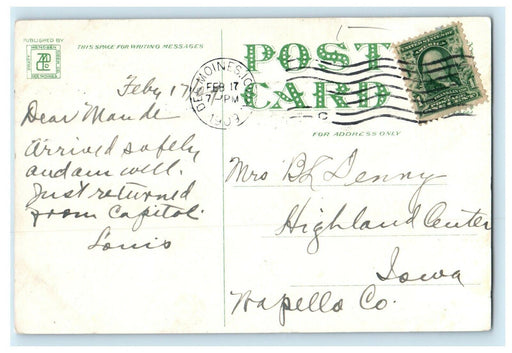 PUBLISHED BY
THIS SPACE FOR WRITING MESSAGES
POST
CARD
FOR ADDRESS ONLY
DES MOINES, IOWA
FEB 17
7-PM
1909
C
Feby 17
Dear Maude
Arrived safely
and am well.
Just returned
from Capitol.
Louis
Mrs B L Denny
Highland Center
Iowa
Wapello Co.